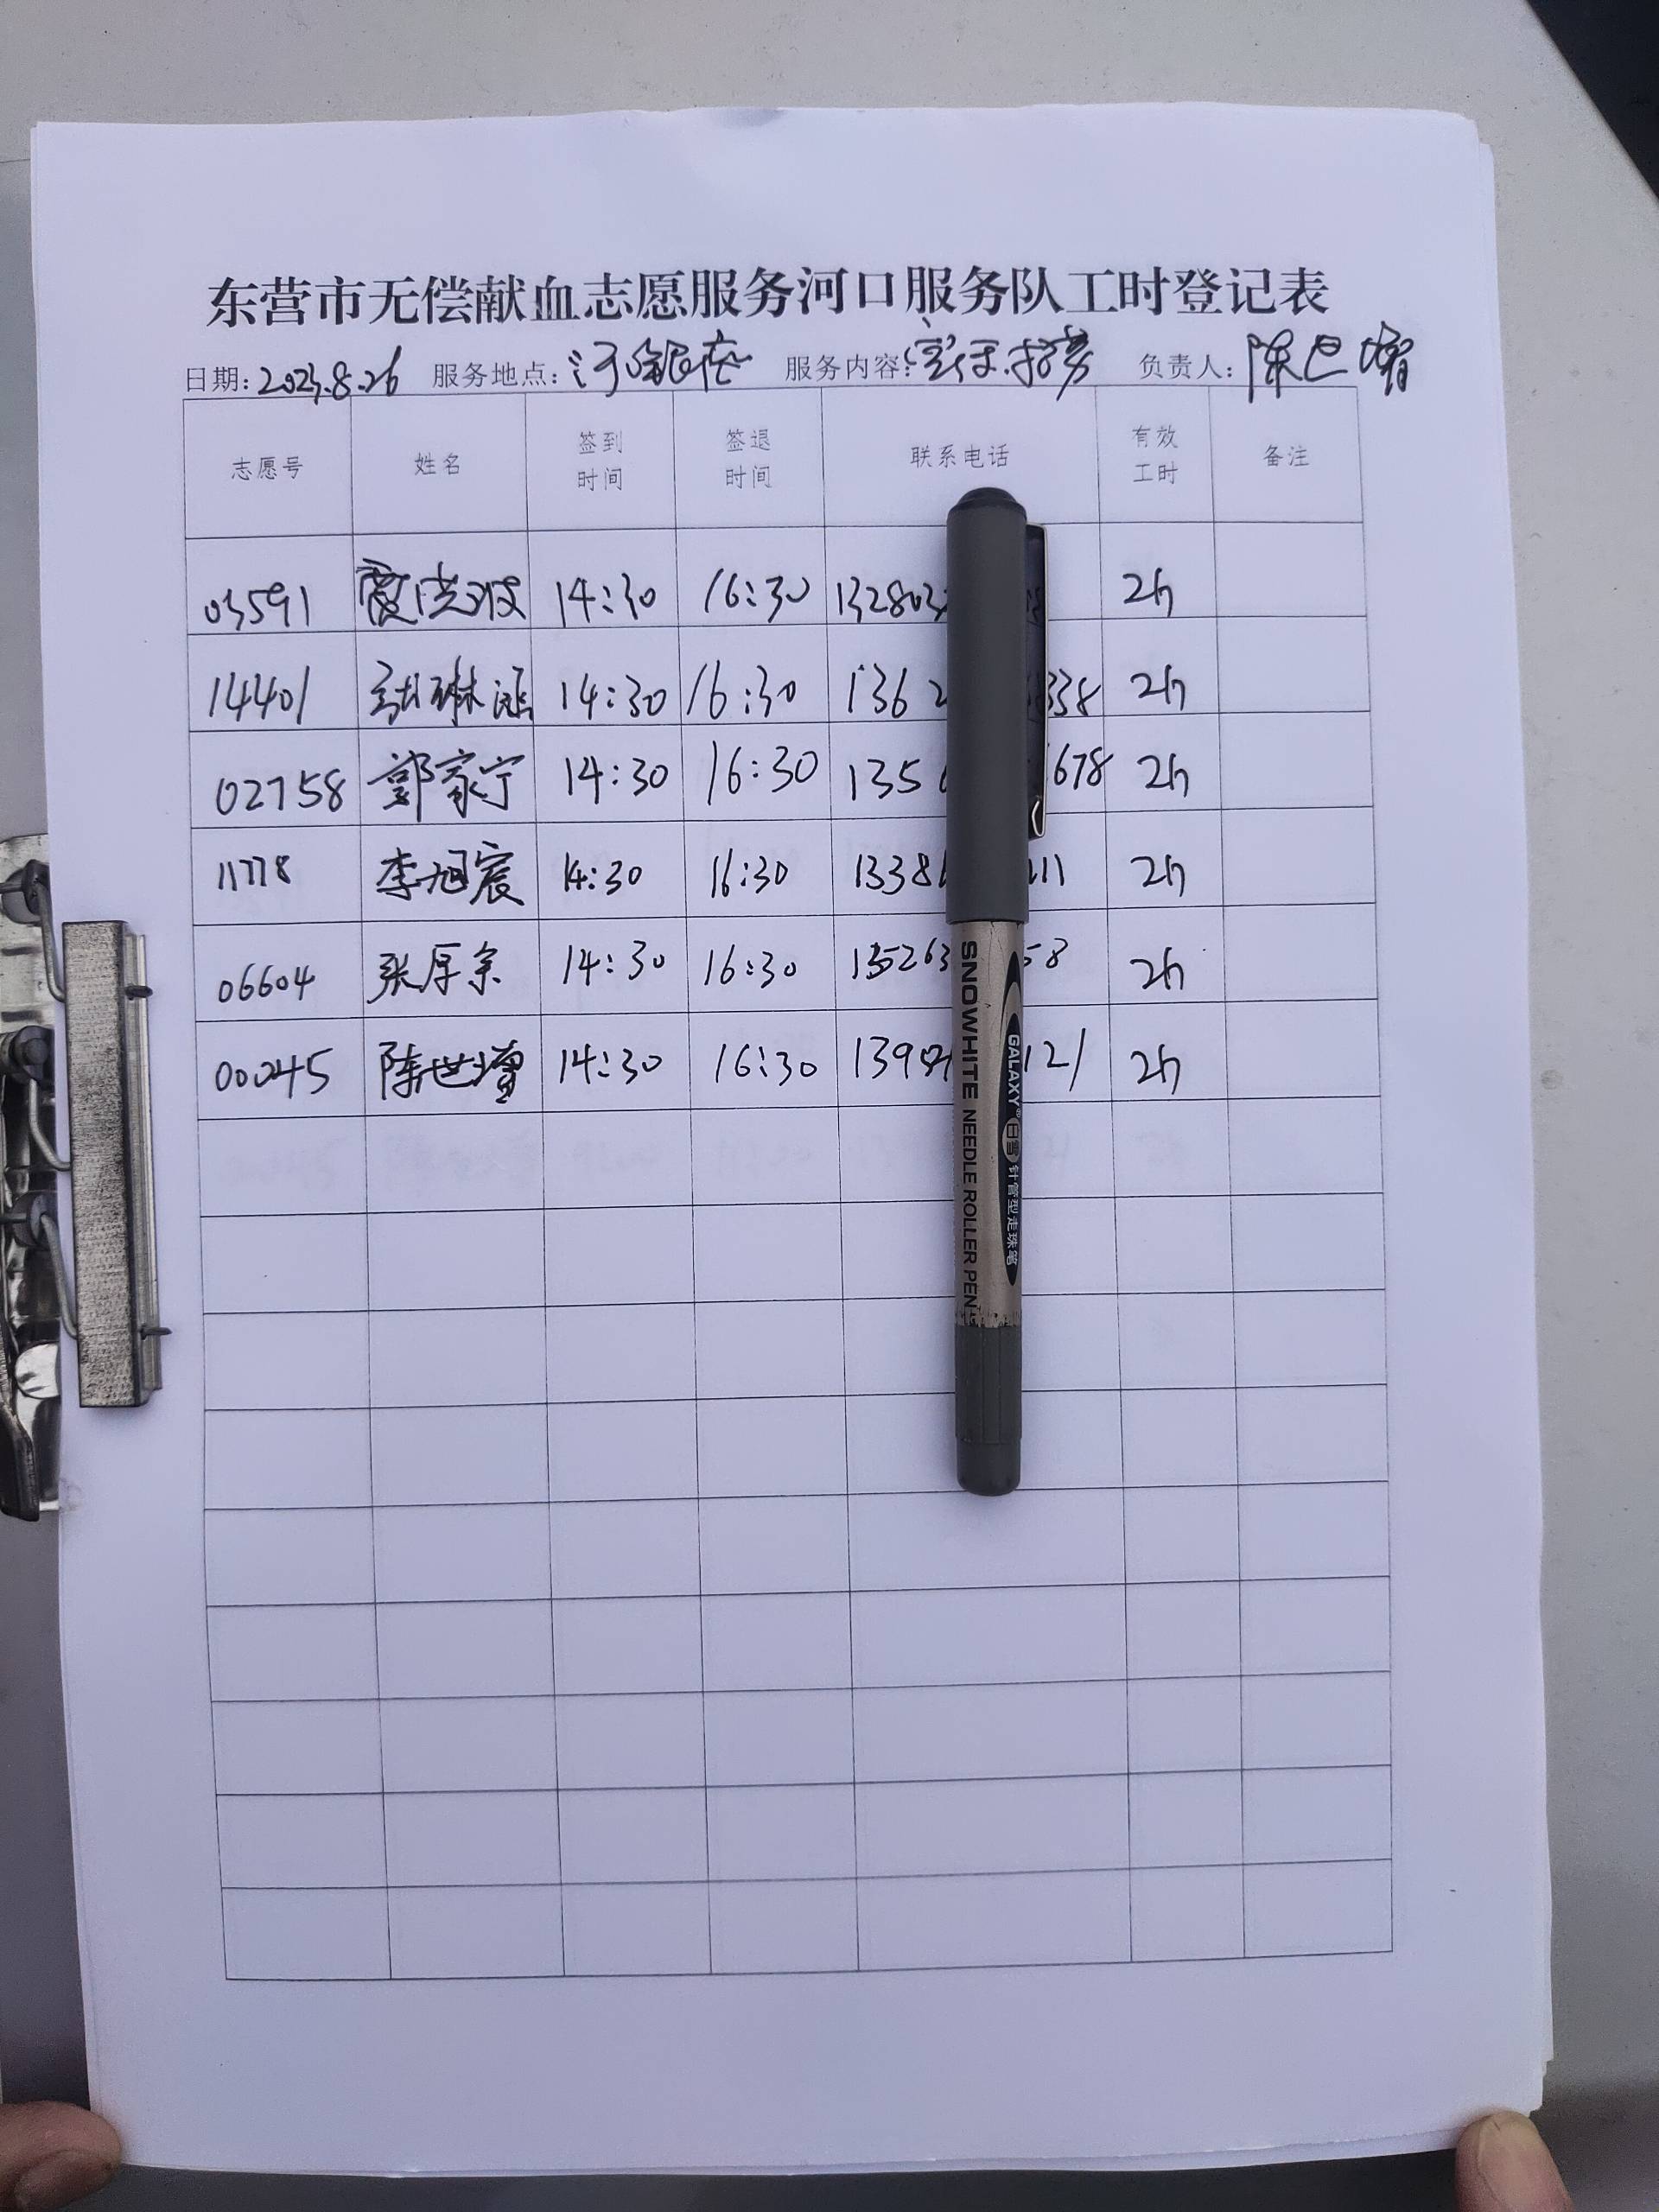 东营市无偿献血志愿服务河口服务队工时登记表
日期: 2023.8.26 服务地点: 河口银座 服务内容: 宣传.招募 负责人: 陈世增
志愿号 姓名 签到时间 签退时间 联系电话 有效工时 备注
03591 14:30 16:30 132803 2h
14401 14:30 16:30 1362 338 2h
02758 郭家宁 14:30 16:30 135 678 2h
11778 李旭宸 14:30 16:30 1338 211 2h
06604 张厚宗 14:30 16:30 135263 58 2h
00045 陈世增 14:30 16:30 139 121 2h
SNOWHITE NEEDLE ROLLER PEN
GALAXY 白雪 针管型走珠笔